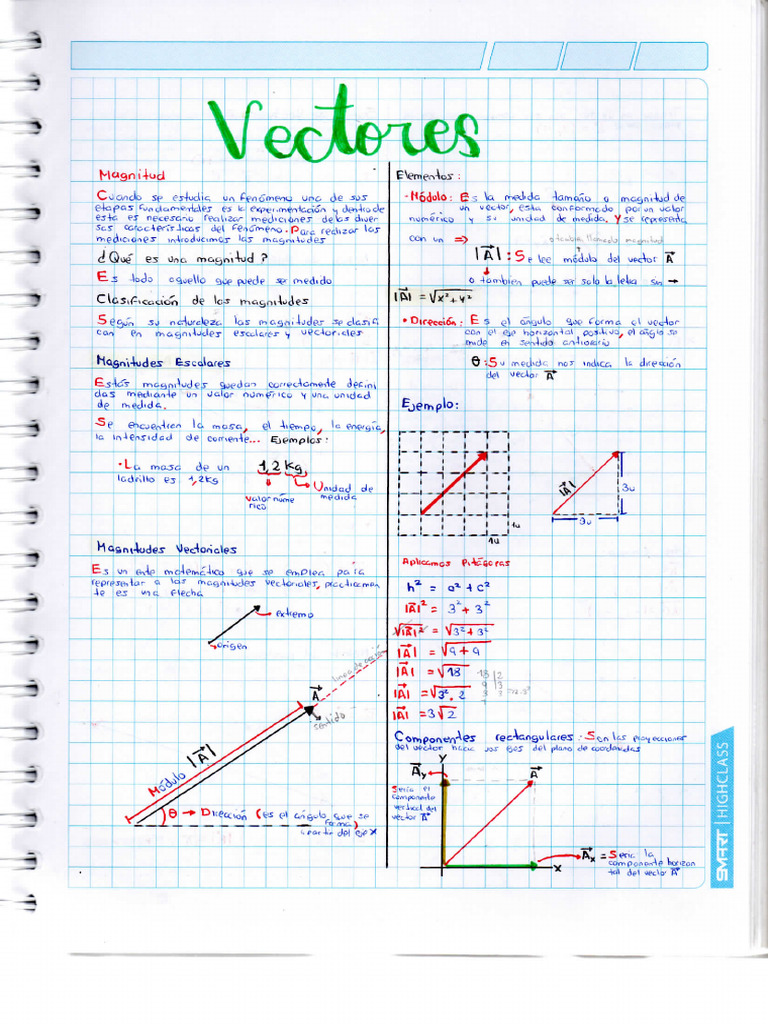 Vectores
Magnitud
Cuando se estudia un fenómeno una de sus
etapas fundamentales es la experimentación y dentro de
esta es necesario realizar mediciones de las diver
sas características del fenómeno. Para realizar las
mediciones introducimos las magnitudes
¿Qué es una magnitud?
Es todo aquello que puede ser medido
Clasificación de las magnitudes
Según su naturaleza las magnitudes se clasifi
can en magnitudes escalares y vectoriales
Magnitudes Escalares
Estás magnitudes quedan correctamente defini
das mediante un valor numérico y una unidad
de medida.
Se encuentran la masa, el tiempo, la energía,
la intensidad de corriente... Ejemplos:
• La masa de un
ladrillo es 1,2kg
1,2 kg
Unidad de
medida
valor núme
rico
Magnitudes Vectoriales
Es un ente matemático que se emplea para
representar a las magnitudes vectoriales, practicamen
te es una flecha
extremo
origen
linea de acción
A
sentido
Módulo |A|
θ → Dirección (es el ángulo que se
forma)
a partir del eje x
Elementos:
• Módulo: Es la medida tamaño o magnitud de
un vector, esta conformado por un valor
numérico y su unidad de medida. Y se representa
con un ⇒
o tambien llamado magnitud
|A|: Se lee módulo del vector A
o tambien puede ser solo la letra sin →
|A| = √x² + y²
• Dirección: Es el ángulo que forma el vector
con el eje horizontal positivo, el ángulo se
mide en sentido antiorario
θ: Su medida nos indica la dirección
del vector A
Ejemplo:
1u
1u
|A|
3u
3u
Aplicamos Pitágoras
h² = a² + c²
|A|² = 3² + 3²
√|A|² = √3² + 3²
|A| = √9 + 9
|A| = √18
18 2
9 3
3 3
1
|A| = √3². 2
|A| = 3√2
Componentes rectangulares: Son las proyecciones
del vector hacia los ejes del plano de coordenadas
Y
Ay
A
Seria el
componente
vertical del
vector A
X
Ax = Seria la
componente horizon
tal del vector A
SMART | HIGHCLASS